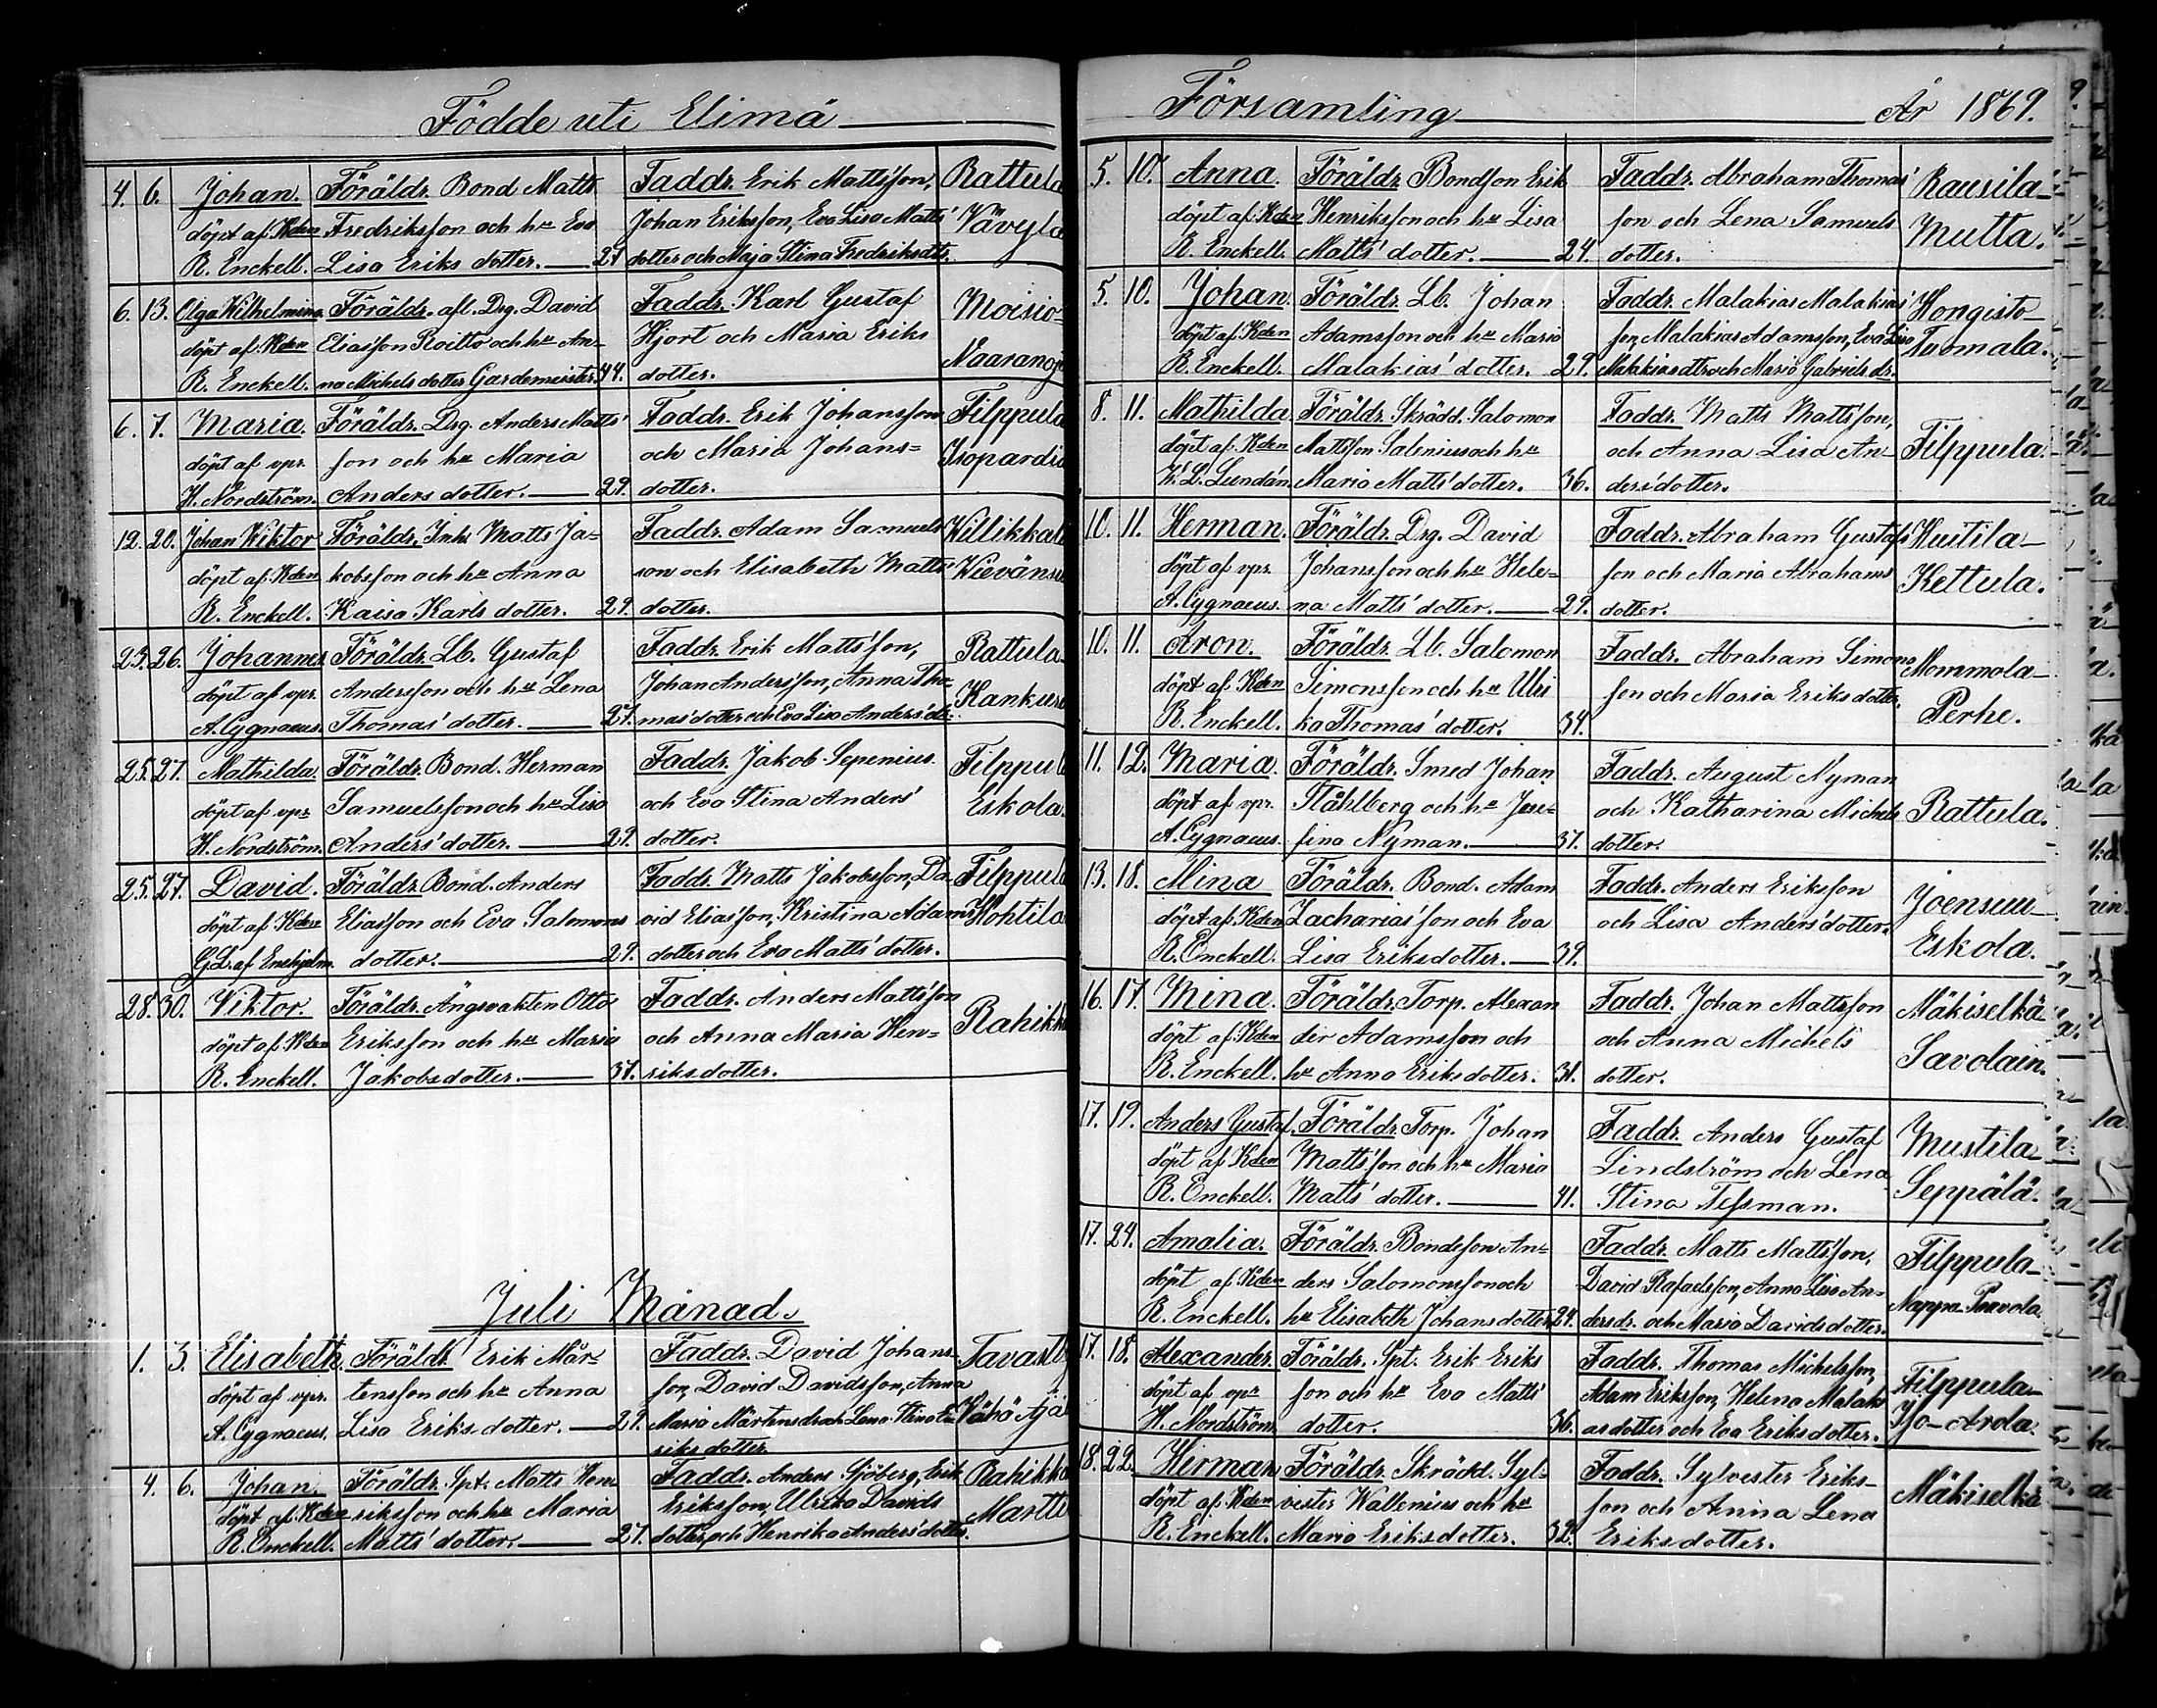 Födde uti Elimä
4. 6. Johan. Föräldr. Bond Matts Faddr. Erik Mattsson, Rattula
döpt af Kden Fredriksson och hu Eva Johan Eriksson, Eva Lisa Matts' Vävylä
R. Enckell. Lisa Eriks dotter. 27 dotter och Maja Stina Fredriksdtr.
6. 13. Olga Wilhelmina Föräldr. afl. Drg. David Faddr. Karl Gustaf Moisio-
döpt af Kden Eliasson Roitto och hu An- Hjort och Maria Eriks
R. Enckell. na Michels dotter Gardemeister. 44. dotter.
6. 7. Maria. Föräldr. Drg. Anders Matts' Faddr. Erik Johansson Filppula
döpt af vpr. son och hu Maria och Maria Johans= Isopardi
H. Nordström. Anders dotter. 29. dotter.
12. 20. Johan Viktor Föräldr. Inh. Matts Ja= Faddr. Adam Samuels Villikkala
döpt af Kden kobsson och hu Anna son och Elisabeth Matts'
R. Enckell. Kaisa Karls dotter. 29. dotter.
23. 26. Johannes Föräldr. Lb. Gustaf Faddr. Erik Mattsson, Rattula
döpt af vpr. Andersson och hu Lena Johan Andersson, Anna Tho- Kankus
A. Cygnaeus. Thomas' dotter. 27. mas' dotter och Eva Lisa Anders' dr.
25. 27. Mathilda. Föräldr. Bond. Herman Faddr. Jakob Sepenius Filppula
döpt af vpr Samuelsson och hu Lisa och Eva Stina Anders' Eskola.
H. Nordström. Anders' dotter. 29. dotter.
25. 27. David. Föräldr. Bond. Anders Faddr. Matts Jakobsson, Da- Filppula
döpt af Kden Eliasson och Eva Salomons vid Eliasson, Kristina Adams' Kohtila
G.L. af Enehjelm. dotter. 29. dotter och Eva Matts' dotter.
28. 30. Viktor. Föräldr. Ängsvakten Otto Faddr. Anders Mattsson Rahikka
döpt af Kden Eriksson och hu Maria och Anna Maria Hen-
R. Enckell. Jakobsdotter. 37. riksdotter.
Juli Månad.
1. 3. Elisabeth. Föräldr. Erik Mår- Faddr. David Johans- Tavast
döpt af vpr. tensson och hu Anna son, David Davidsson, Anna Vähä Ajä
A. Cygnaeus. Lisa Eriks dotter. 29. Maria Mårtensdr och Lena Stina E-
riks dotter
4. 6. Johan. Föräldr. Spt. Matts Hen Faddr. Anders Sjöberg, Erik Rahikka
döpt af Kden riksson och hu Maria Eriksson, Ulrika Davids Martti
R. Enckell. Matts' dotter. 27. dotter, och Henrika Anders' dotter.
Församling År 1869.
5. 10. Anna. Föräldr. Bondson Erik Faddr. Abraham Thomas' Rausila-
döpt af Kden Henriksson och hu Lisa son och Lena Samuels Mutta.
R. Enckell. Matts' dotter. 24. dotter.
5. 10. Johan. Föräldr. Lb. Johan Faddr. Malakias Malakias' Hongisto-
döpt af Kden Adamsson och hu Maria son, Malakias Adamsson, Eva Lisa Tuomala.
R. Enckell. Malakias' dotter. 29. Malakiasdtr och Maria Gabriels dr.
8. 11. Mathilda Föräldr. Skrädd. Salomon Faddr. Matts Mattsson, Filppula.
döpt af Kden Mattsson Salenius och hu och Anna Lisa An-
K. L. Lundán. Maria Matts' dotter. 36. ders' dotter.
10. 11. Herman. Föräldr. Drg. David Faddr. Abraham Gustafs' Huitila-
döpt af vpr Johansson och hu Hele= son och Maria Abrahams Kettula.
A. Cygnaeus. na Matts' dotter. 29. dotter.
10. 11. Aron. Föräldr. Lb. Salomon Faddr. Abraham Simons Mommola-
döpt af Kden Simonsson och hu Ulri son och Maria Eriksdotter. Perhe.
R. Enckell. ka Thomas' dotter. 34.
11. 12. Maria. Föräldr. Smed Johan Faddr. August Nyman Rattula.
döpt af vpr. Ståhlberg och hu Jose= och Katharina Michels
A. Cygnaeus. fina Nyman. 37. dotter.
13. 18. Mina Föräldr. Bond. Adam Faddr. Anders Eriksson Joensuu-
döpt af Kden Zacharias'son och Eva och Lisa Anders' dotter. Eskola.
R. Enckell. Lisa Eriksdotter. 39.
16. 17. Mina. Föräldr. Torp. Alexan Faddr. Johan Mattsson Mäkiselkä
döpt af Kden der Adamsson och och Anna Michels Savolain.
R. Enckell. hu Anna Eriksdotter. 31. dotter.
17. 19. Anders Gustaf. Föräldr. Torp. Johan Faddr. Anders Gustaf Mustila-
döpt af Kden Mattsson och hu Maria Lindström och Lena Seppälä.
R. Enckell. Matts' dotter. 41. Stina Tessman.
17. 24. Amalia. Föräldr. Bondesson An= Faddr. Matts Mattsson, Filppula-
döpt af Kden ders Salomonsson och David Rafaelsson, Anna Lisa An= Nappa Paavola
R. Enckell. hu Elisabeth Johansdotter 24. dersdr. och Maria Davidsdotter.
17. 18. Alexander. Föräldr. Spt. Erik Eriks Faddr. Thomas Michelsson, Filppula-
döpt af vpr son och hu Eva Matts' Adam Eriksson, Helena Malaki Iso-Arola.
H. Nordström dotter. 36. as dotter och Eva Eriksdotter.
18. 22. Herman Föräldr. Skrädd. Syl- Faddr. Sylvester Eriks- Mäkiselkä
döpt af Kden vester Wallenius och hu son och Anna Lena
R. Enckell. Maria Eriksdotter. 32. Eriksdotter.